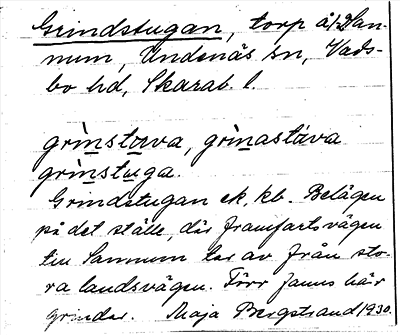 Grindstugan, torp å 1/2 San-
num, Undenäs sn, Vads-
bo hd, Skarab. l.
grìnstøva, grìnastäva
grìnstuga.
Grindstugan ek. kb. Belägen
på det ställe, där framfartsvägen
till Sannum tar av från sto-
ra landsvägen. Förr fanns här
grindar. Maja Bergstrand 1930.